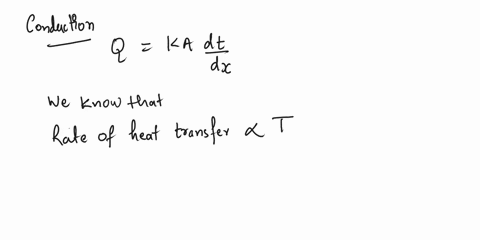 Conduction
Q = KA dt/dx
We know that
Rate of heat transfer ∝ T